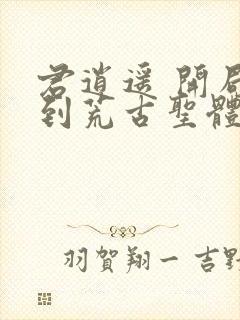 君逍遥 開局
到荒古聖體
羽賀翔一 吉野